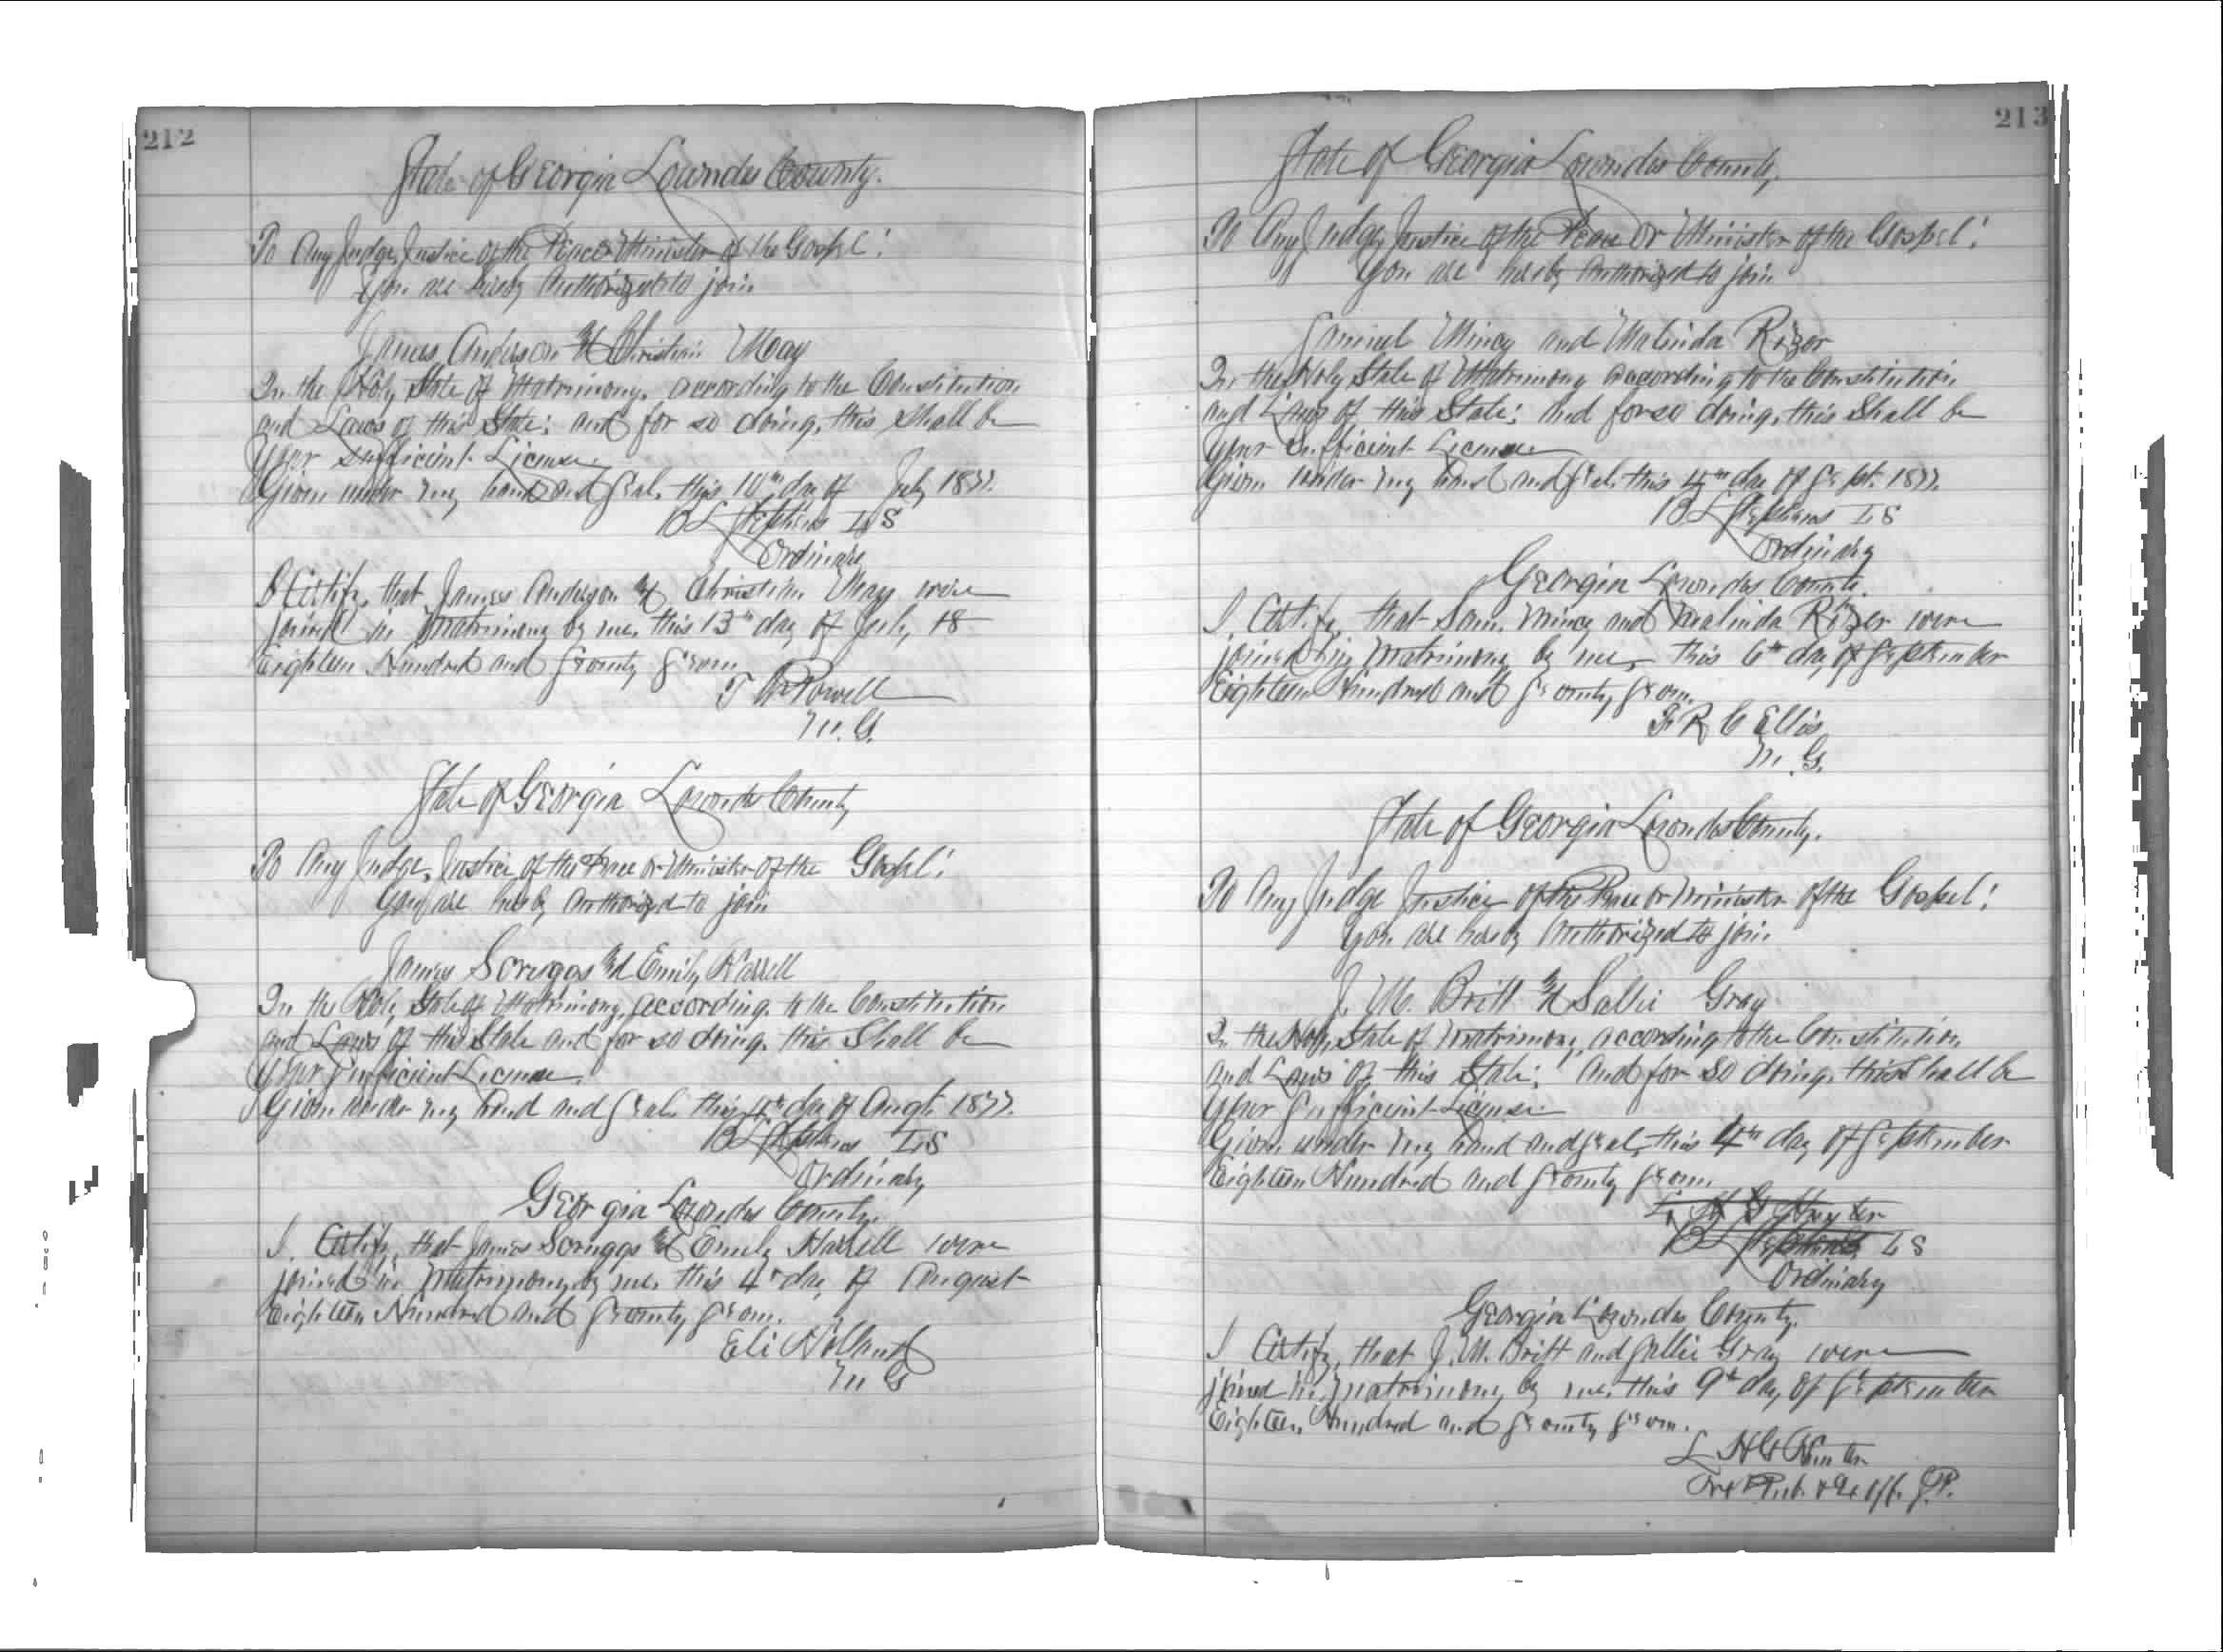 212
State of Georgia Lowndes County.
To Any Judge, Justice of the Peace or Minister of the Gospel!
You are hereby Authorized to join
James Anderson & Christian May
In the Holy State of Matrimony, according to the Constitution
and Laws of this State: and for so doing, this shall be
Your sufficient License.
Given under my hand and Seal, this 10th day of July 1877.
B L Stephens LS
Ordinary
I Certify, that James Anderson & Christian May were
joined in Matrimony by me, this 13th day of July, 18
Eighteen Hundred and Seventy Seven
T Powell
M. G.
State of Georgia Lowndes County
To Any Judge, Justice of the Peace or Minister of the Gospel!
You are hereby Authorized to join
James Scruggs & Emily Harrell
In the Holy State of Matrimony, according to the Constitution
and Laws of this State and for so doing, this Shall be
Your Sufficient License.
Given under my hand and Seal, this 4th day of Augt. 1877.
B L Stephens LS
Ordinary
Georgia Lowndes County.
I Certify, that James Scruggs & Emily Harrell were
joined in Matrimony, by me, this 4th day of August
Eighteen Hundred and Seventy Seven.
Eli
M G
213
State of Georgia Lowndes County,
To Any Judge, Justice of the Peace or Minister of the Gospel!
You are hereby Authorized to join
Samuel Mincy and Malinda Rizer
In the Holy State of Matrimony according to the Constitution
and Laws of this State: And for so doing, this Shall be
Your Sufficient License
Given under my hand and Seal, this 4th day of Sept. 1877.
B L Stephens LS
Ordinary
Georgia Lowndes County.
I Certify, that Sam. Mincy and Malinda Rizer were
joined in Matrimony by me, this 6th day of September
Eighteen Hundred and Seventy Seven.
F R C Ellis
M. G.
State of Georgia Lowndes County.
To Any Judge Justice of the Peace or Minister of the Gospel!
You are hereby Authorized to join
J. M. Britt & Sallie Gray
In the Holy State of Matrimony, according to the Constitution
and Laws of this State: And for so doing, this Shall be
Your Sufficient License
Given under my hand and Seal, this 4th day of September
Eighteen Hundred and Seventy Seven.
B L Stephens LS
Ordinary
Georgia Lowndes County.
I Certify, that J. M. Britt and Sallie Gray were
joined in Matrimony by me, this 9th day of September
Eighteen Hundred and Seventy Seven.
L H G Hunter
Not Pub. & Ex Off. J.P.